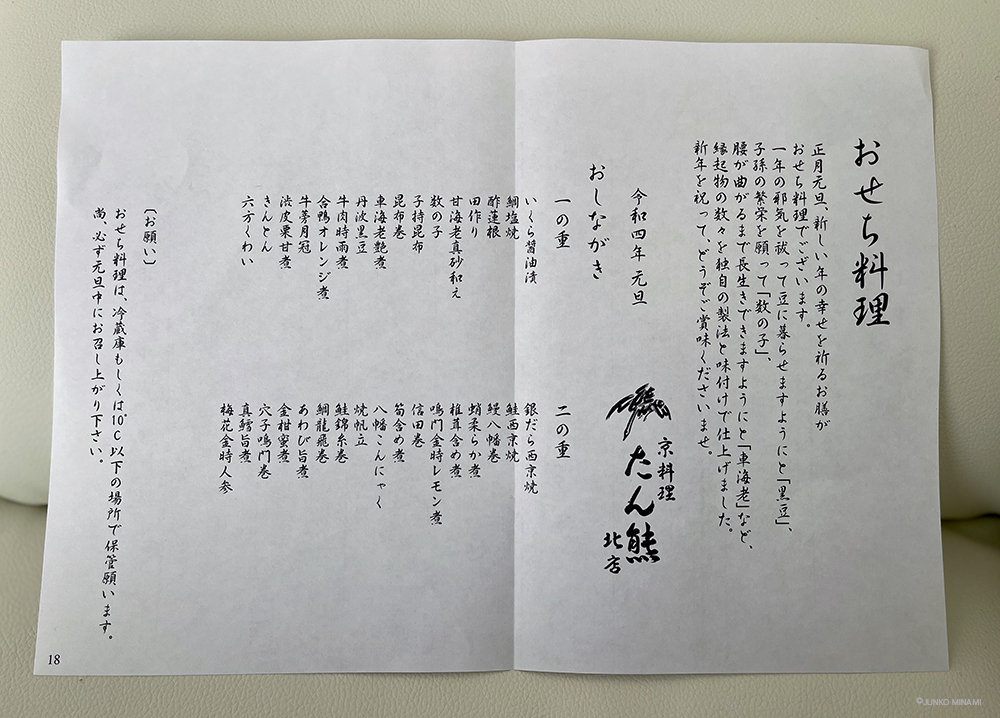 おせち料理
正月元旦、新しい年の幸せを祈るお膳が
おせち料理でございます。
一年の邪気を祓って豆に暮らせますようにと「黒豆」、
子孫の繁栄を願って「数の子」、
腰が曲がるまで長生きできますようにと「車海老」など、
縁起物の数々を独自の製法と味付けで仕上げました。
新年を祝って、どうぞご賞味くださいませ。
令和四年 元旦
京料理
たん熊
北店
おしながき
一の重
いくら醤油漬
鯛塩焼
酢蓮根
田作り
甘海老真砂和え
数の子
子持昆布
昆布巻
車海老艶煮
丹波黒豆
牛肉時雨煮
合鴨オレンジ煮
牛蒡月冠
渋皮栗甘煮
きんとん
六方くわい
二の重
銀だら西京焼
鮭西京焼
鰻八幡巻
蛸柔らか煮
椎茸含め煮
鳴門金時レモン煮
信田巻
筍含め煮
八幡こんにゃく
焼帆立
鮭錦糸巻
鯛龍飛巻
あわび旨煮
金柑蜜煮
穴子鳴門巻
真鱈旨煮
梅花金時人参
〔お願い〕
おせち料理は、冷蔵庫もしくは10℃以下の場所で保管願います。
尚、必ず元旦中にお召し上がり下さい。
18
©JUNKO MINAMI